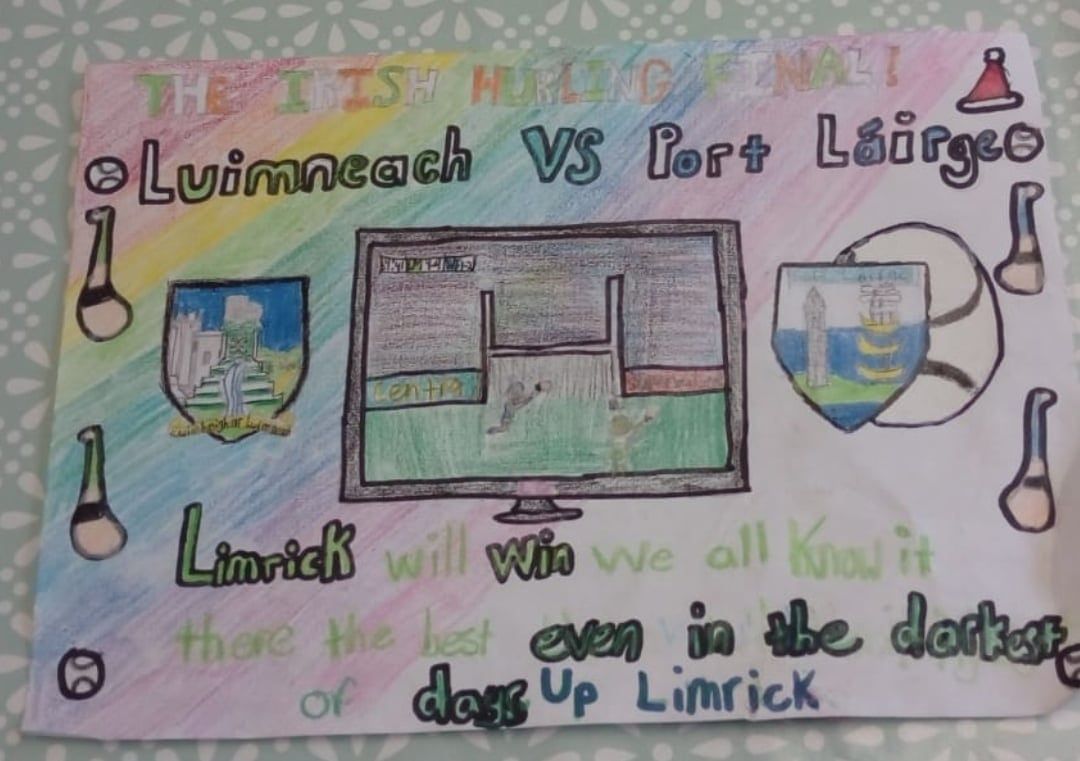 THE IRISH HURLING FINAL!
Luimneach VS Port Láirge
Centra
Limrick will win we all know it
there the best even in the darkest
of days Up Limrick